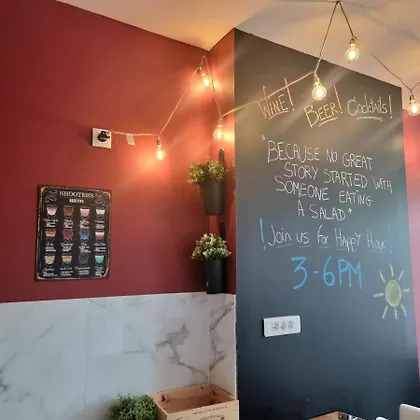 Wine! Beer! Cocktails!
"Because no great
story started with
someone eating
a salad"
! Join us for Happy Hour !
3-6PM
SHOOTERS